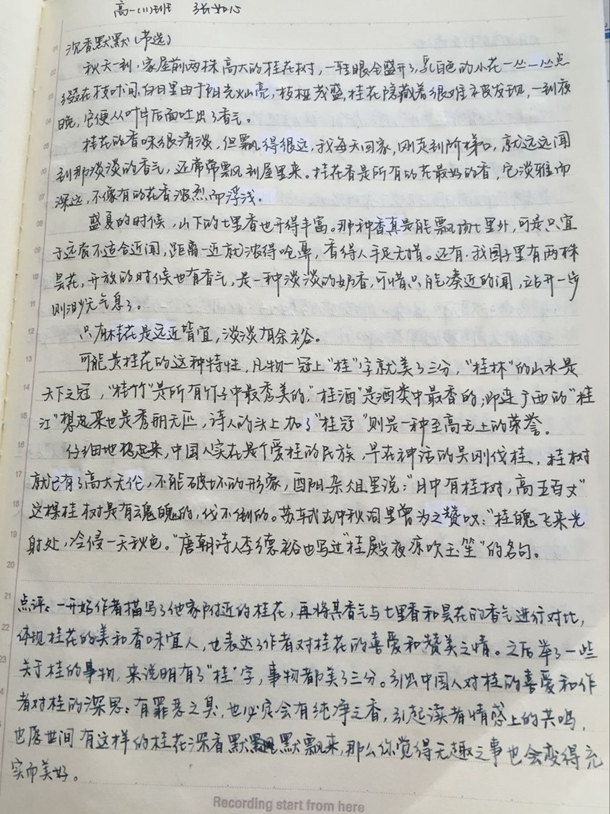 高一(11)班 张如心
沉香默默(节选)
秋天一到,家屋前两株高大的桂花树,一转眼全盛开了,乳白色的小花一丛一丛点
缀在枝叶间,白日里由于阳光灿亮,枝桠茂盛,桂花隐藏着很难不被发现,一到夜
晚,它便从叶片后面吐出了香气。
桂花的香味很清淡,但飘得很远,我每天回家,刚走到阶梯口,就远远闻
到那淡淡的香气,还常常飘到屋里来。桂花香是所有的花最好的香,它淡雅而
深远,不像有的花香浓烈而浮浅。
盛夏的时候,山下的七里香也开得丰富。那种香真是能飘扬七里外,可是只宜
于远香不适合近闻,距离一近就浓得呛鼻,香得人手足无措。还有,我园子里有两株
昙花,开放的时候也有香气,是一种淡淡的奶香,可惜只能凑近的闻,站开一步
则渺无气息了。
只有桂花是远近皆宜,淡淡有余裕。
可能是桂花的这种特性,凡物一冠上"桂"字就美了三分,"桂林"的山水是
天下之冠,"桂竹"是所有竹子中最秀美的,"桂酒"是酒类中最香的,即连广西的"桂
江"想起来也是秀丽无匹,诗人的头上加了"桂冠"则是一种至高无上的荣誉。
仔细地想起来,中国人实在是个爱桂的民族,早在神话的吴刚伐桂,桂树
就已有了高大无伦,不能破坏的形象,酉阳杂俎里说:"月中有桂树,高五百丈"
这棵桂树是有魂魄的,伐不倒的。苏轼在中秋词里曾为之赞叹:"桂魄飞来光
射处,冷侵一天秋色。"唐朝诗人李德裕也写过"桂殿夜凉吹玉笙"的名句。
点评:一开始作者描写了他家附近的桂花,再将其香气与七里香和昙花的香气进行对比,
体现桂花的美和香味宜人,也表达了作者对桂花的喜爱和赞美之情。之后举了一些
关于桂的事物,来说明有了"桂"字,事物都美了三分。引出中国人对桂的喜爱和作
者对桂的深思:有罪恶之臭,也必定会有纯净之香,引起读者情感上的共鸣,
也愿世间有这样的桂花深香默默飘来,那么你觉得无趣之事也会变得充
实而美好。
Recording start from here